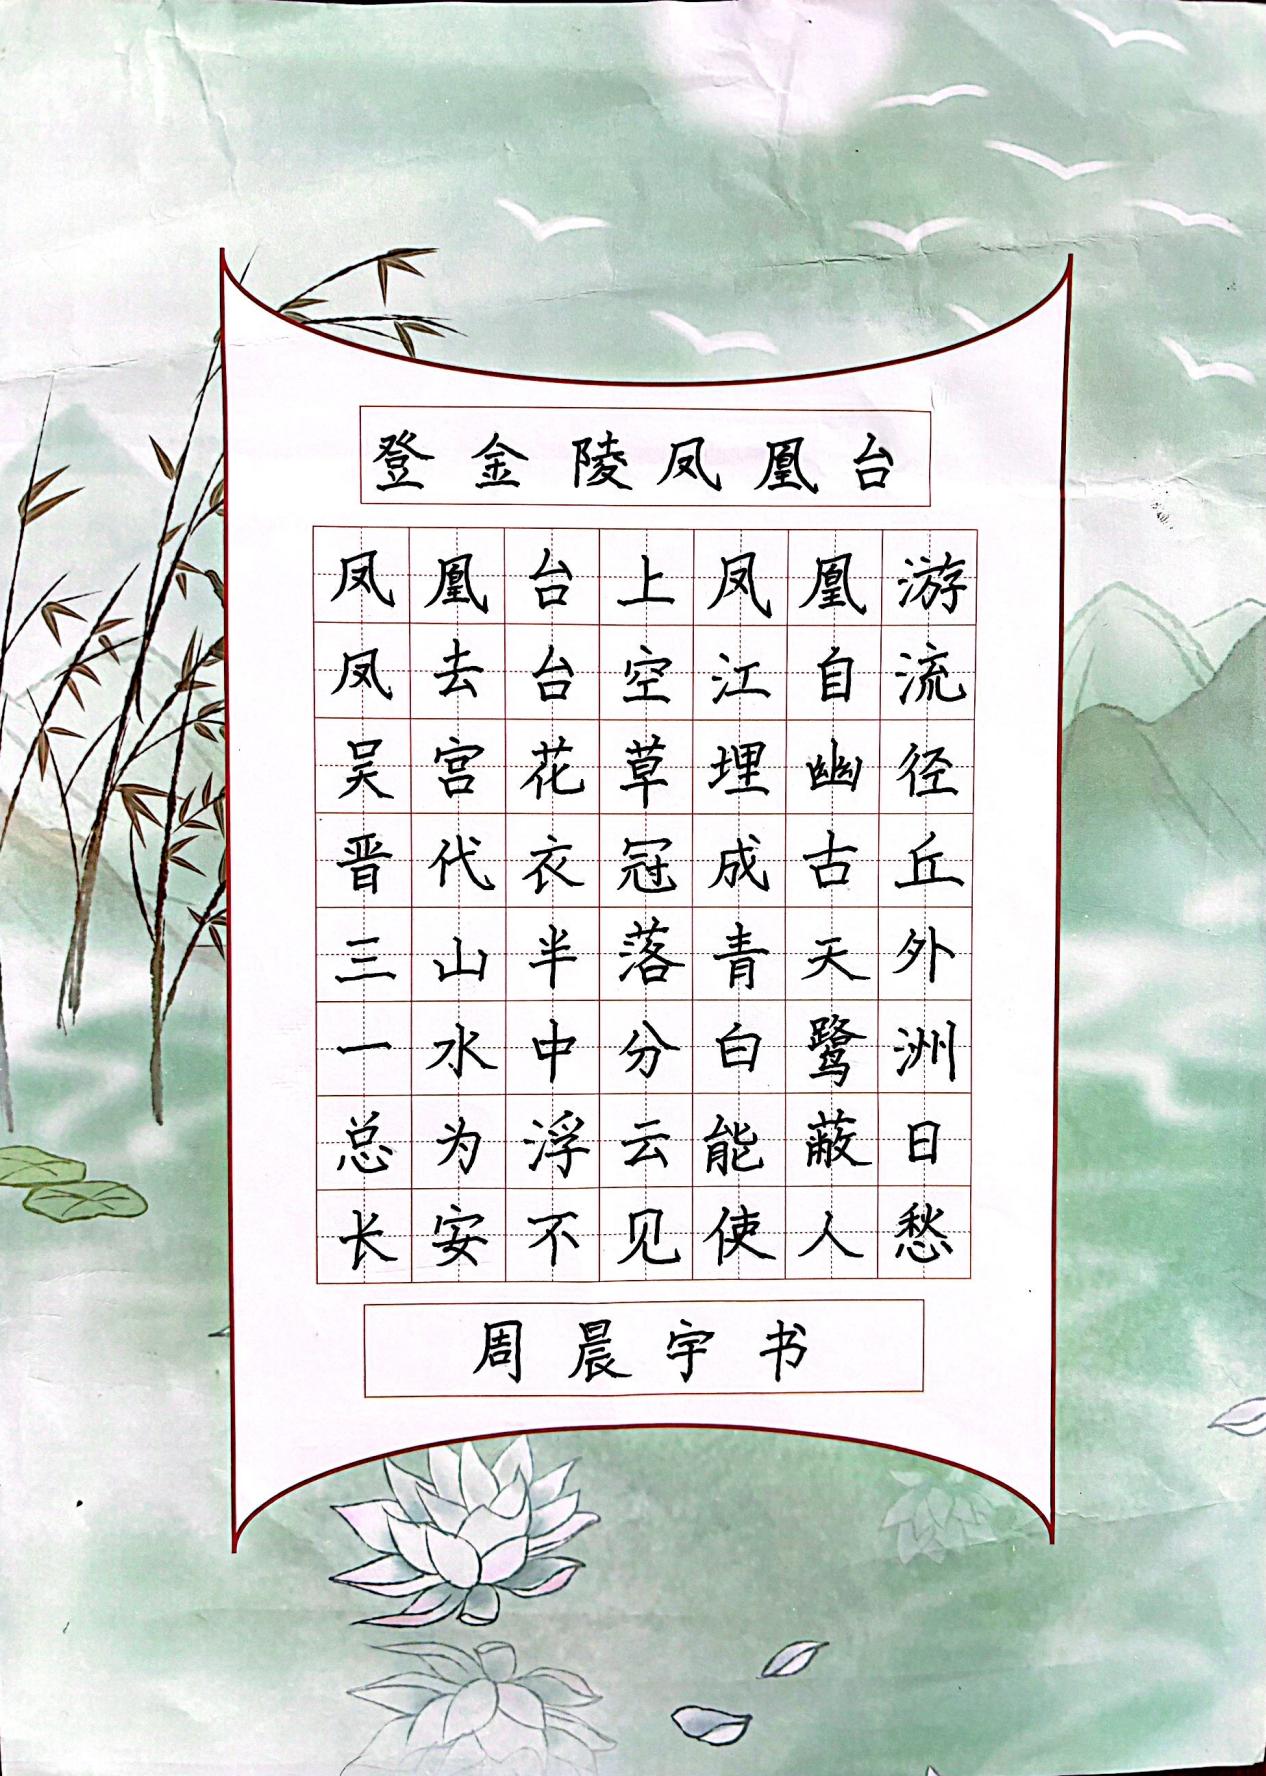 登金陵凤凰台
凤凰台上凤凰游
凤去台空江自流
吴宫花草埋幽径
晋代衣冠成古丘
三山半落青天外
一水中分白鹭洲
总为浮云能蔽日
长安不见使人愁
周晨宇书